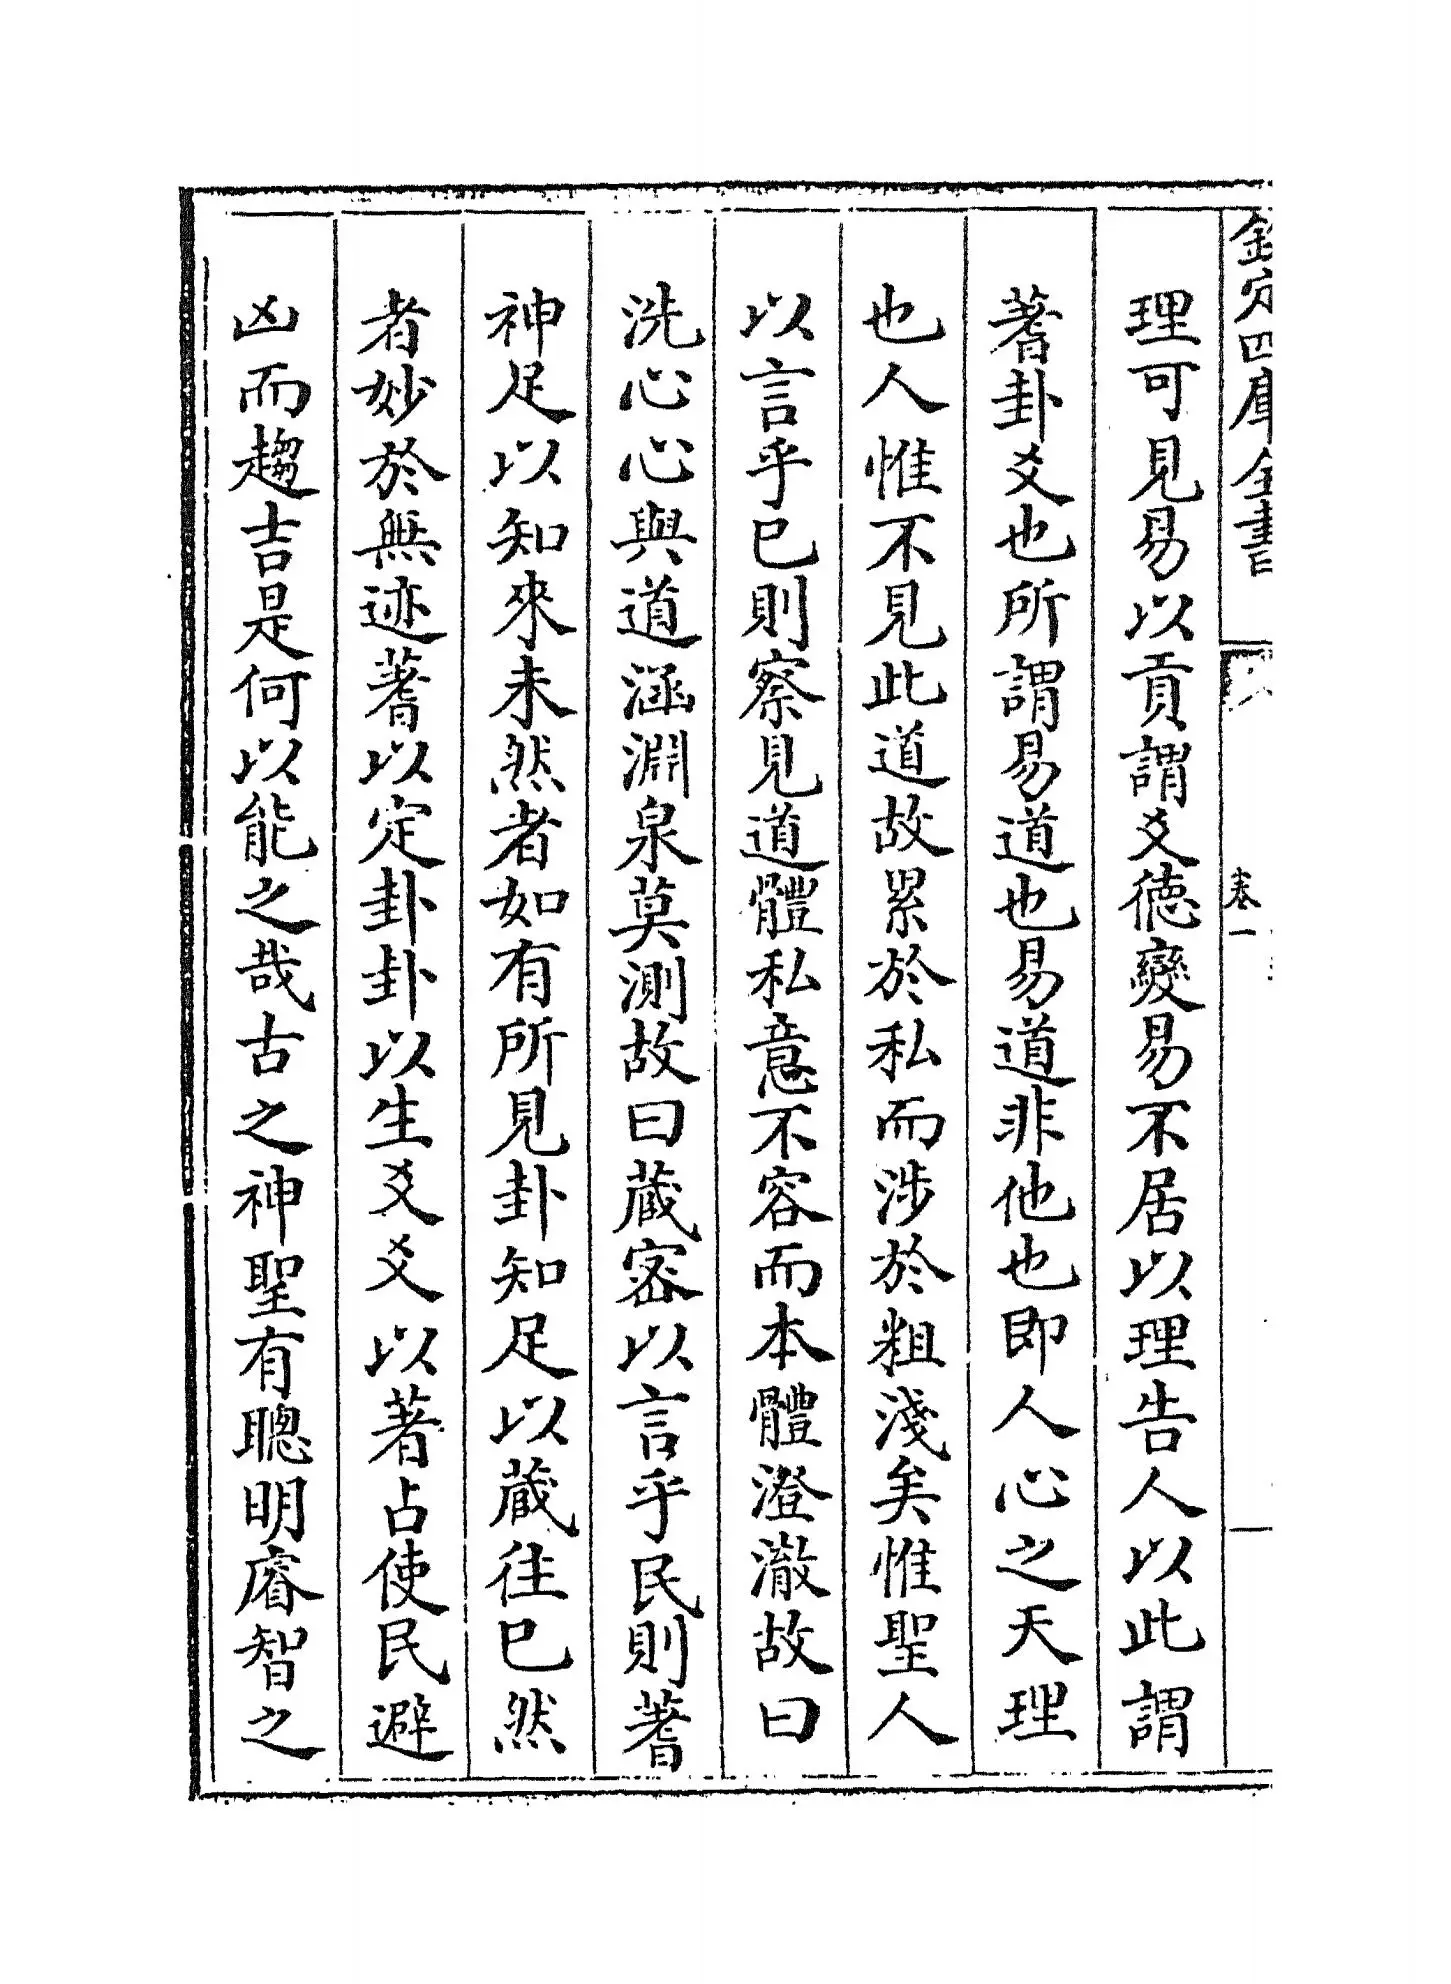 欽定四庫全書
卷一
理可見易以貢謂爻德變易不居以理告人以此謂
蓍卦爻也所謂易道也易道非他也即人心之天理
也人惟不見此道故累於私而涉於粗淺矣惟聖人
以言乎已則察見道體私意不容而本體澄澈故曰
洗心心與道涵淵泉莫測故曰蔵宻以言乎民則蓍
神足以知來未然者如有所見卦知足以蔵往已然
者妙於無迹蓍以定卦卦以生爻爻以著占使民避
凶而趨吉是何以能之哉古之神聖有聰明睿智之